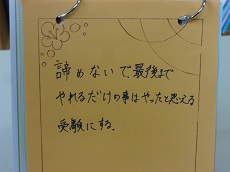 諦めないで、最後まで
やれるだけの事はやったと思える
受験にする。